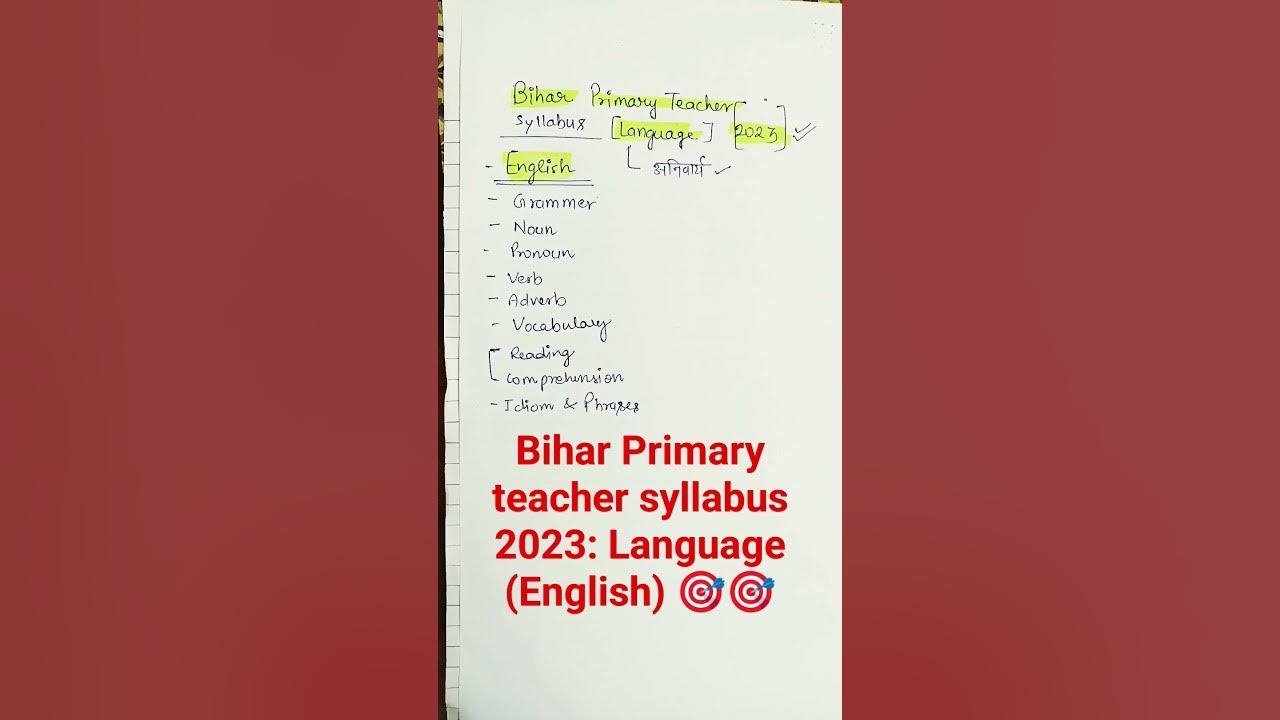 Bihar Primary Teacher
Syllabus [Language] [2023]
- English
अनिवार्य
- Grammer
- Noun
- Pronoun
- Verb
- Adverb
- Vocabulary
Reading
Comprehension
- Idiom & Phrases
Bihar Primary
teacher syllabus
2023: Language
(English) 🎯🎯